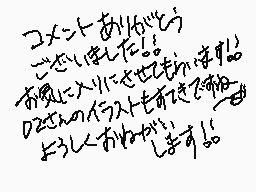 コメントありがとう
ございました!!
お気に入りにさせてもらいます!!
DZさんのイラストもすてきですねー
よろしくおねがい
します!!